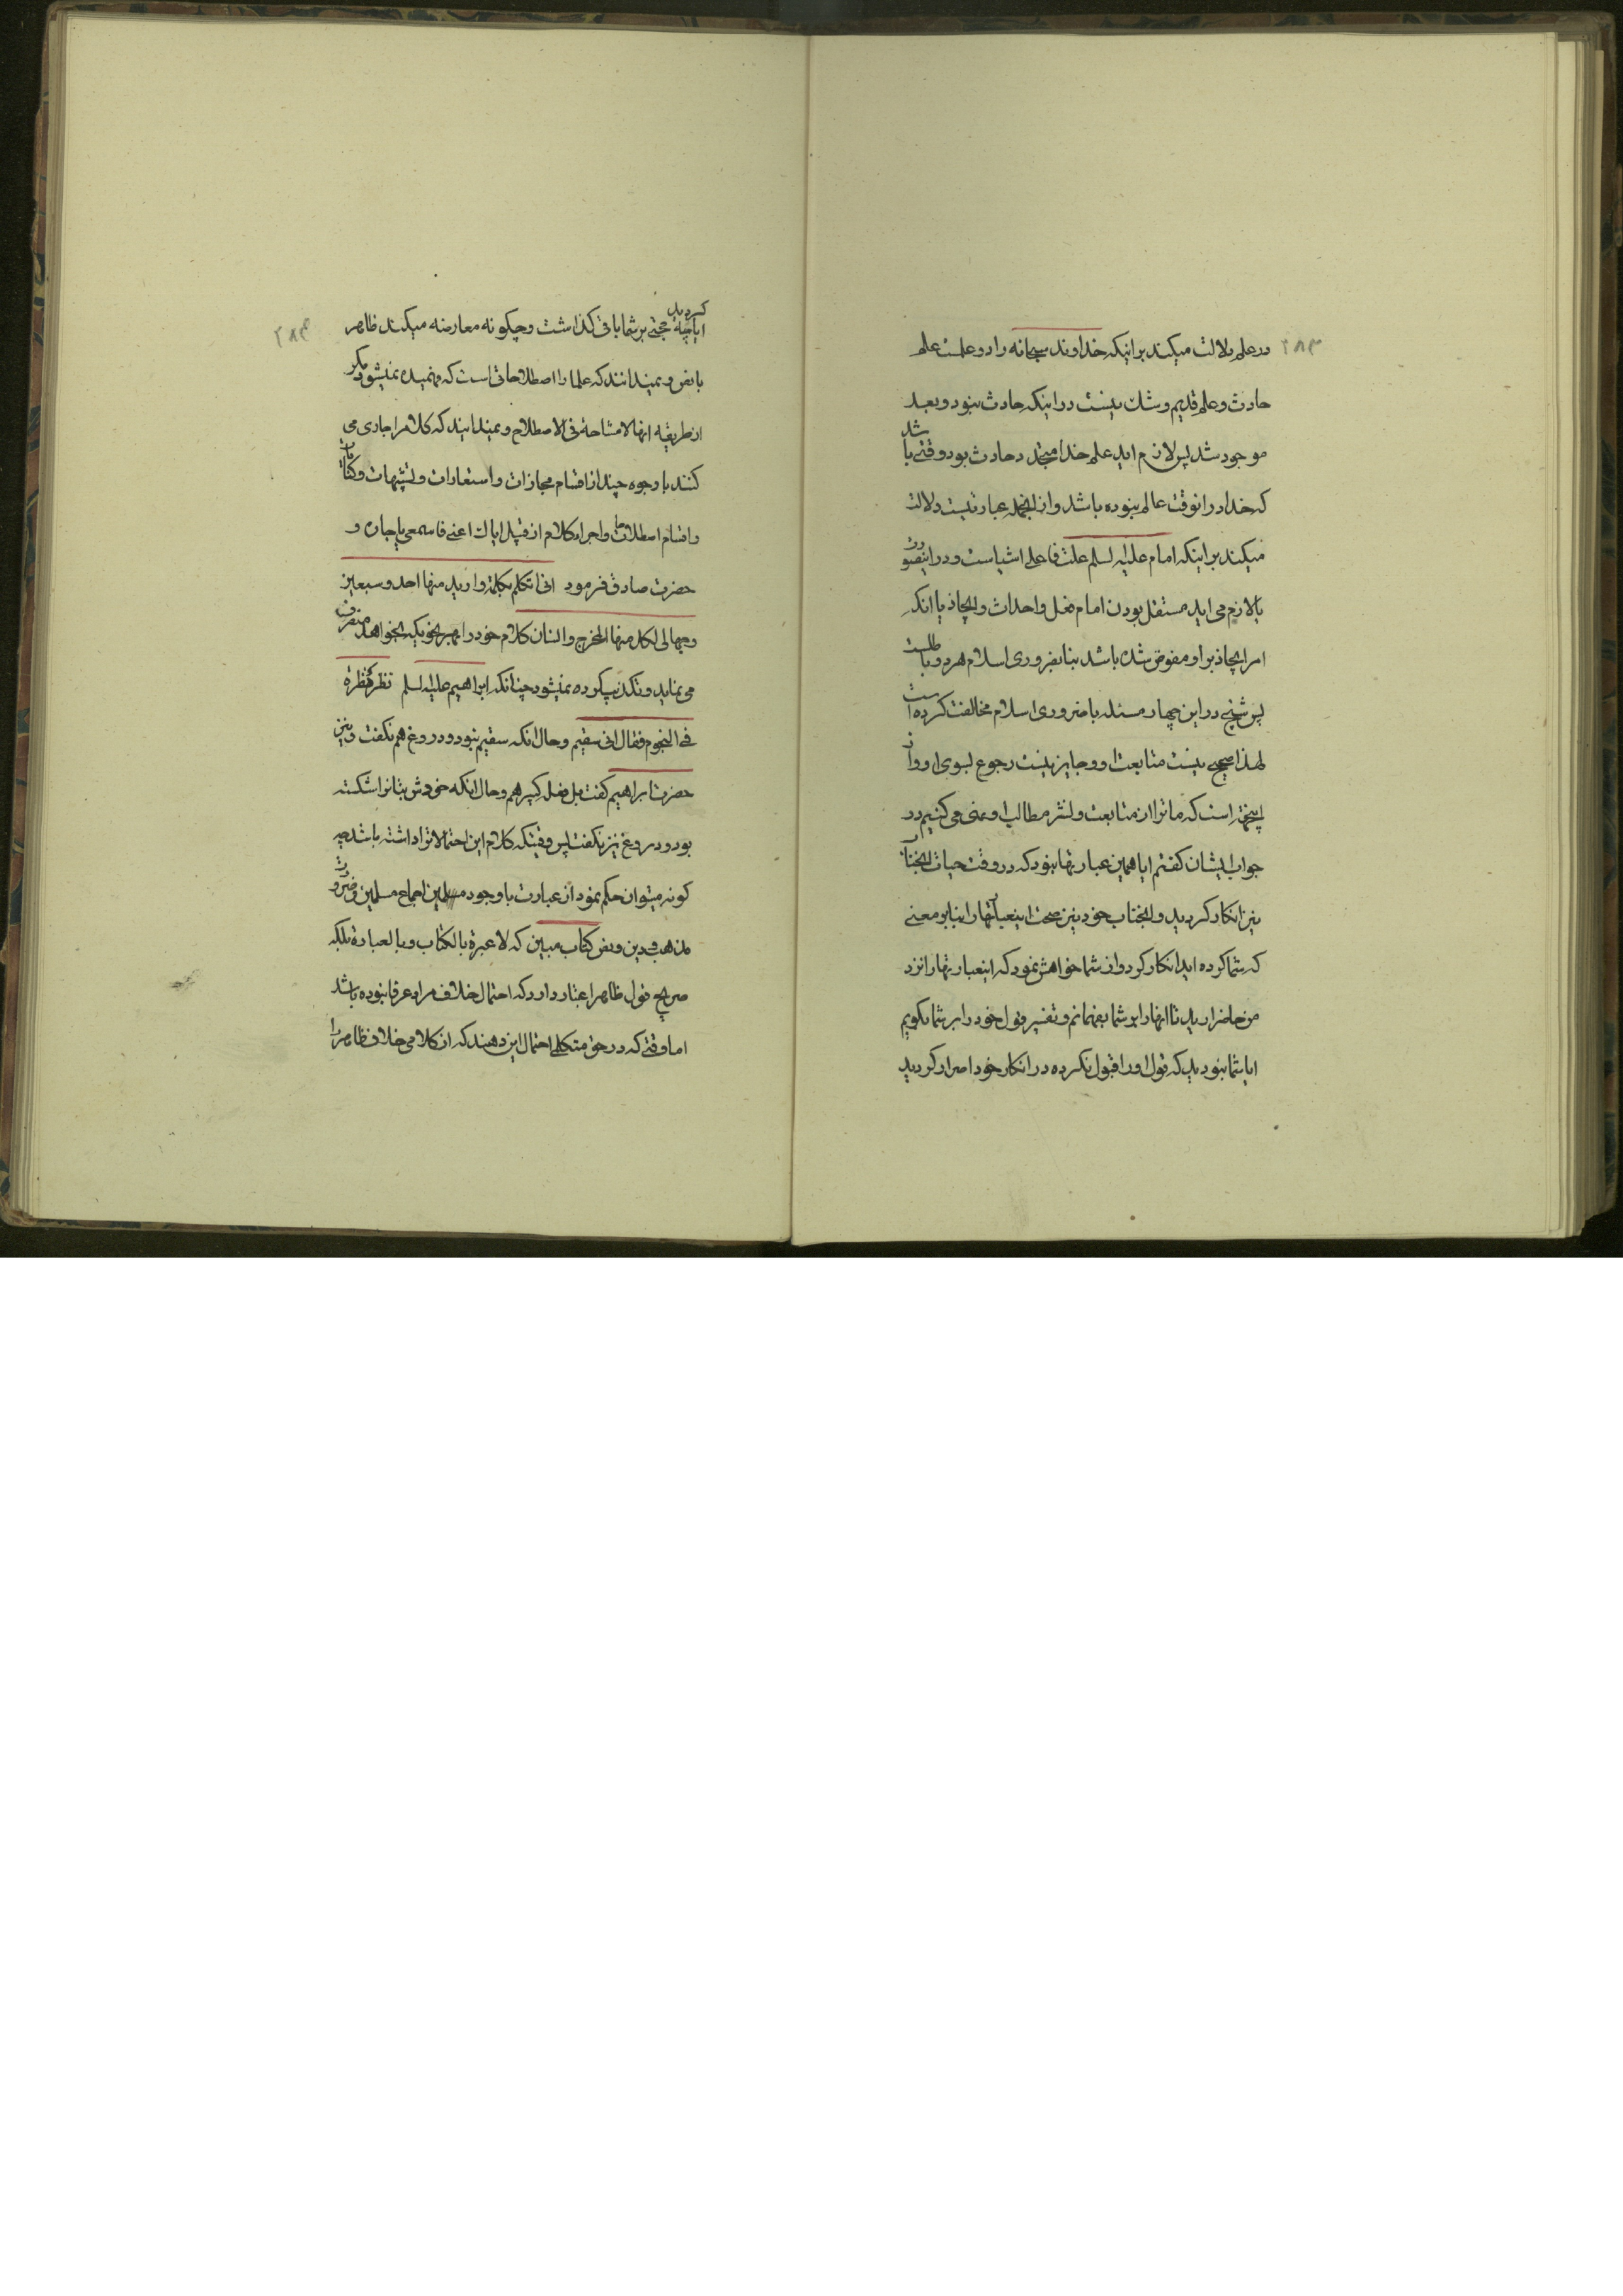 ۲۸۳
در علم دلالت میکند بر اینکه خداوند سبحانه را دو علمست علم
حادث و علم قدیم و شک نیست در اینکه حادث نبود و بعد
موجود شد پس لازم اید علم خدا متجدد حادث بود وقتی باشد
که خدا در انوقت عالم نبوده باشد و از انجمله عبارتیست دلالت
میکند بر اینکه امام علیه لسلم علت فاعلی اشیاست و در اینصورت
یا لازم می اید مستقل بودن امام فعل واحداث و ایجاد یا انکه
امر ایجاد بر او مفوض شده باشد بنابضروری اسلام هر دو باطلست
پس شیخی در این چهار مسئله با ضروری اسلام مخالفت کرده است
لهذا صحیح نیست متابعت او و جایز نیست رجوع بسوی او و از
اینجهة است که ما ترا از متابعت و نشر مطالب او منع می کنیم در
جواب ایشان کفتم ایا همین عبارتها نبود که در وقت حیات انجناب
نیز انکار کردید و انجناب خود نیز صحت اینعبارتها را بنابر معنی
که شما کرده اید انکار کرد و از شما خواهش نمود که اینعبارتها را نزد
من حاضر ارید تا انها را بر شما بفهمانم و تفسیر قول خود را بر شما بکویم
ایا شما نبودید که قول او را قبول نکرده در انکار خود اصرار کردید
۲۸۴
کردید
ایا چه حجتی بر شما باقی کذاشت و چکونه معارضه میکند ظاهر
با نص و نمیدانند که علما را اصطلاحاتی است که فهمیده نمیشود مکر
از طریقه انها لا مشاحة فی الاصطلاح و نمیدانید که کلام را جاری می
کنند با وجوه چند از اقسام مجازات و استعارات و تشبیهات و کنایات
و اقسام اصطلاحات و اجراء کلام از قبیل ایاک اعنی فاسمعی یا جاره و
حضرت صادق فرمود انی اتکلم بکلمة و ارید منها احد و سبعین
وجها لی لکل منها المخرج و انسان کلام خود را بهر نحویکه بخواهد منصرف
می نماید و تکذیب کرده نمیشود چنانکه ابراهیم علیه لسلم نظر نظرة
فی النجوم فقال انی سقیم و حال انکه سقیم نبود و دروغ هم نکفت و نیز
حضرت ابراهیم کفت بل فعله کبیرهم و حال انکه خودش بتانرا شکسته
بود و دروغ نیز نکفت پس وقتیکه کلام این احتمالاترا داشته باشد چه
کونه میتوان حکم نمود از عبارت با وجود مسلمین اجماع مسلمین و ضرورت
مذهب و دین و نص کتاب مبین که لا عبرة بالکتاب و بالعبارة بلکه
صریح قول ظاهر اعتبار دارد که احتمال خلاف مراد عرفا نبوده باشد
اما وقتی که در حق متکلمی احتمال این دهند که از کلامی خلاف ظاهر را